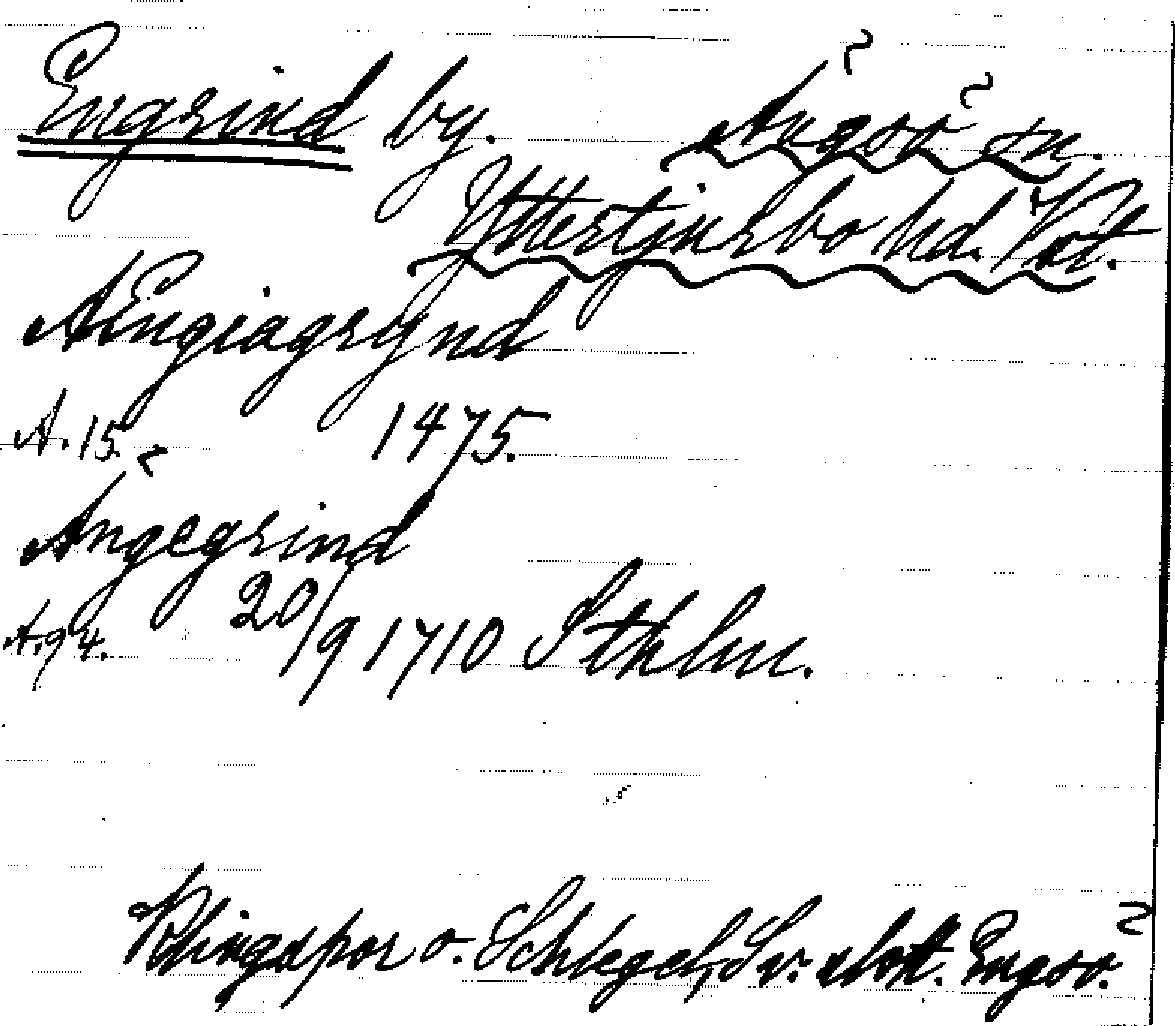 Engrind by. Ängsö sn.
Yttertjurbo hd. Vstm.
AEngiagrynd
A. 15. 1475.
Ängegrind
A. 94. 20/9 1710 Sthlm.
Klingspor o. Schlegel, Sv. slott. Engsö.